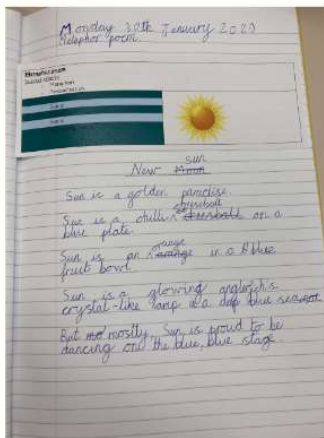 Monday 30th January 2023
Metaphor poem
New Moon sun
Sun is a golden paradise.
Sun is a chilli cheeseball on a
blue plate.
Sun is an orange in a blue
fruit bowl.
Sun is a glowing anglerfish's
crystal-like lamp in a deep blue sea
But mostly, Sun is proud to be
dancing on the blue, blue stage.